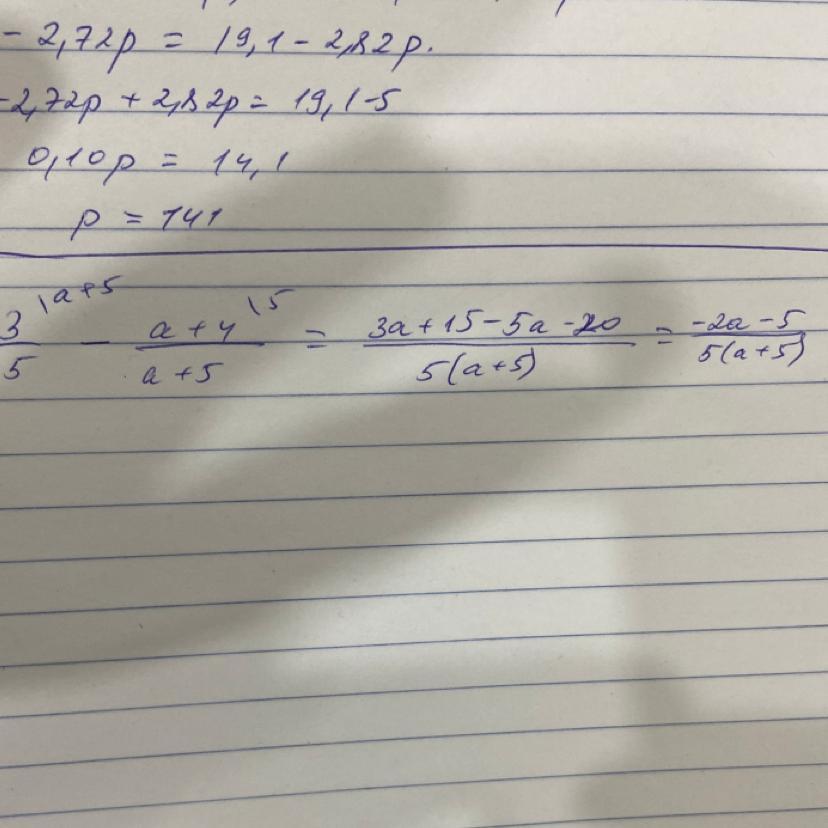 - 2,72p = 19,1 - 2,82p.
-2,72p + 2,82p = 19,1-5
0,10p = 14,1
p = 141
3/5 \a+5 - (a+4)/(a+5) \5 = (3a+15-5a-20)/(5(a+5)) = (-2a-5)/(5(a+5))